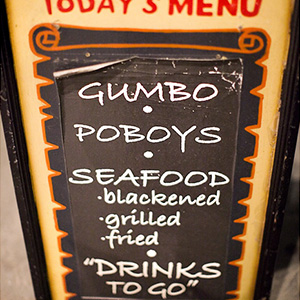 TODAY'S MENU
GUMBO
•
POBOYS
•
SEAFOOD
•blackened
•grilled
•fried
•
"DRINKS
TO GO"